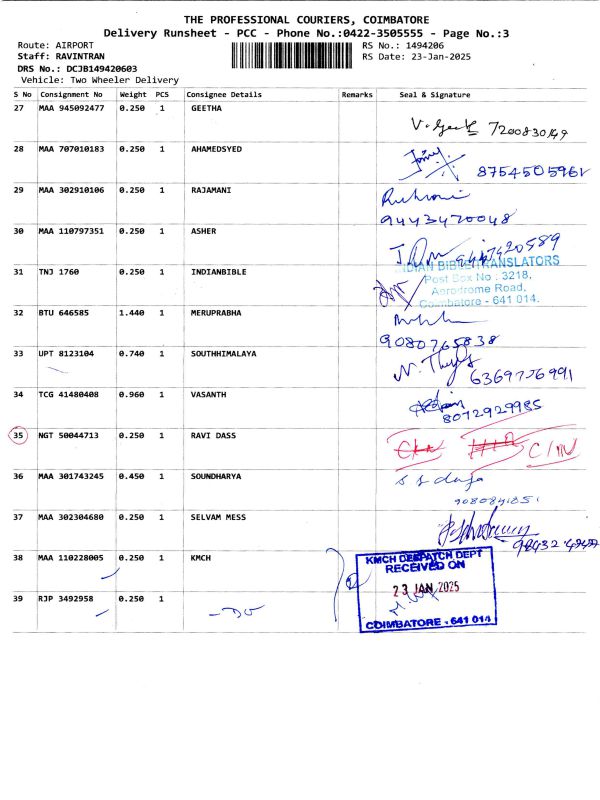 THE PROFESSIONAL COURIERS, COIMBATORE
Delivery Runsheet - PCC - Phone No.:0422-3505555 - Page No.:3
Route: AIRPORT RS No.: 1494206
Staff: RAVINTRAN RS Date: 23-Jan-2025
DRS No.: DCJB149420603
Vehicle: Two Wheeler Delivery
S No Consignment No Weight PCS Consignee Details Remarks Seal & Signature
27 MAA 945092477 0.250 1 GEETHA
7200830149
28 MAA 707010183 0.250 1 AHAMEDSYED
8754505961
29 MAA 302910106 0.250 1 RAJAMANI
9443470048
30 MAA 110797351 0.250 1 ASHER
INDIAN BIBLE TRANSLATORS
31 TNJ 1760 0.250 1 INDIANBIBLE
Post Box No : 3218,
Aerodrome Road,
Coimbatore - 641 014.
32 BTU 646585 1.440 1 MERUPRABHA
9080765838
33 UPT 8123104 0.740 1 SOUTHHIMALAYA
6369776991
34 TCG 41480408 0.960 1 VASANTH
8072929985
35 NGT 50044713 0.250 1 RAVI DASS
36 MAA 301743245 0.450 1 SOUNDHARYA
37 MAA 302304680 0.250 1 SELVAM MESS
38 MAA 110228005 0.250 1 KMCH
KMCH DESPATCH DEPT
RECEIVED ON
23 JAN 2025
39 RJP 3492958 0.250 1
COIMBATORE - 641 014